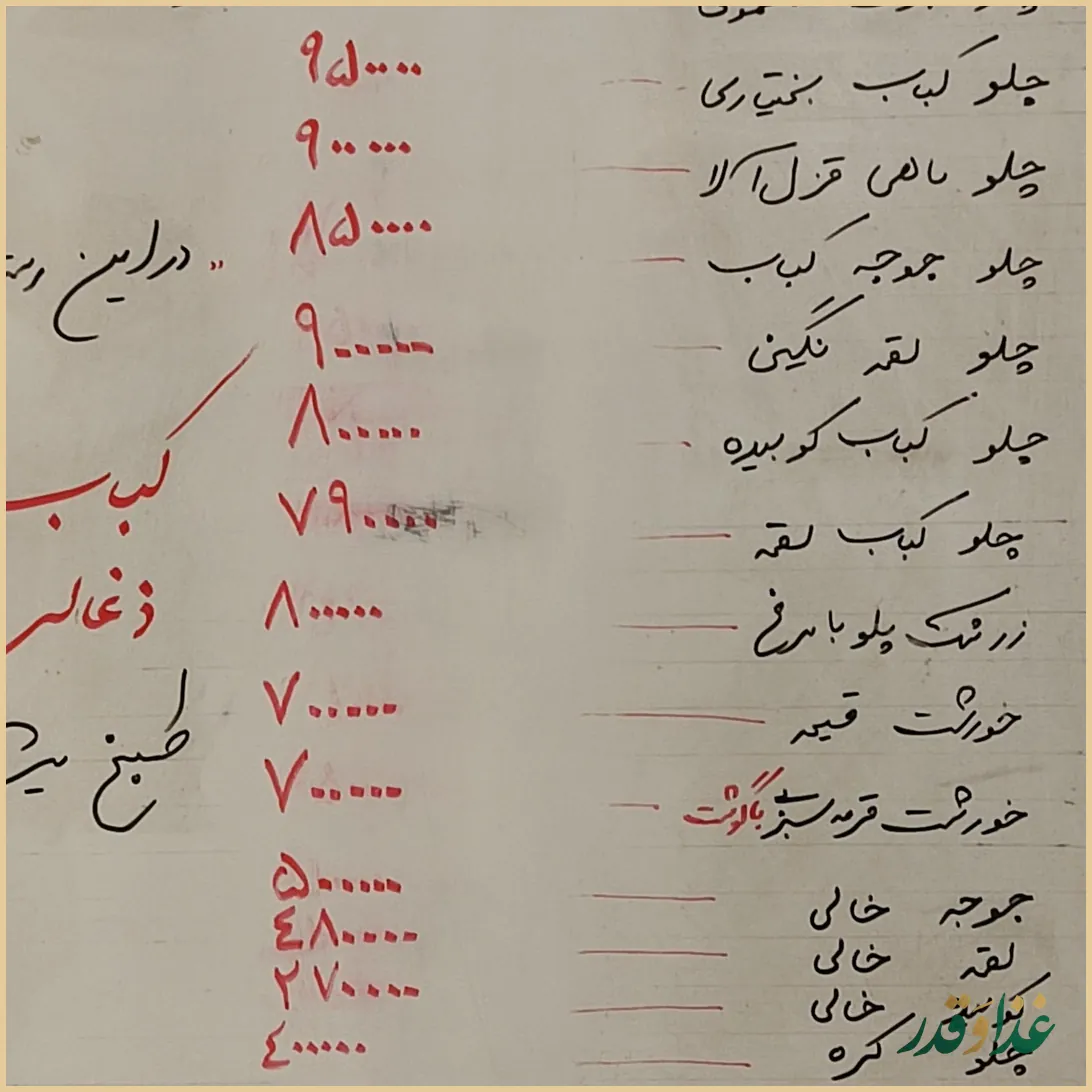 چلو کباب بختیاری ۹۵۰۰۰۰
چلو ماهی قزل آلا ۹۰۰۰۰۰
چلو جوجه کباب ۸۵۰۰۰۰
چلو لقمه نگینی ۹۰۰۰۰۰
چلو کباب کوبیده ۸۰۰۰۰۰
چلو کباب لقمه ۷۹۰۰۰۰
زرشک پلو با مرغ ۸۰۰۰۰۰
خورشت قیمه ۷۰۰۰۰۰
خورشت قرمه سبزی باگوشت ۷۰۰۰۰۰
جوجه خالی ۵۰۰۰۰۰
لقمه خالی ۴۸۰۰۰۰
کوبیده خالی ۲۷۰۰۰۰
چلو کره ۴۰۰۰۰۰
در این
کباب
ذغالی
طبخ
غذا و قدر